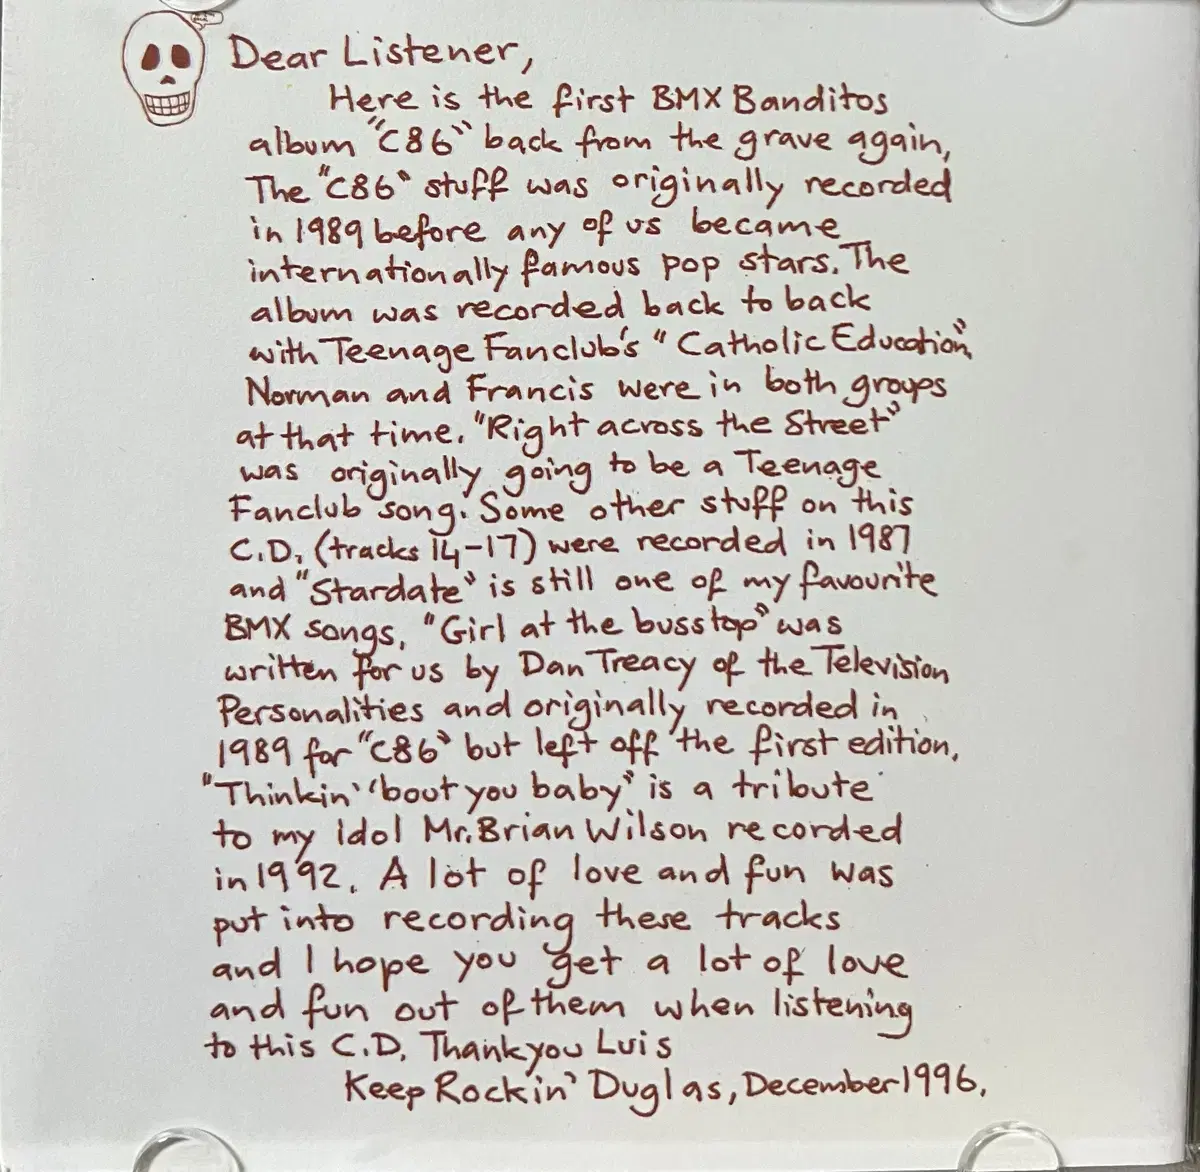 Dear Listener,
Here is the first BMX Banditos
album "C86" back from the grave again,
The "C86" stuff was originally recorded
in 1989 before any of us became
internationally famous pop stars. The
album was recorded back to back
with Teenage Fanclub's "Catholic Education",
Norman and Francis were in both groups
at that time. "Right across the Street"
was originally going to be a Teenage
Fanclub song. Some other stuff on this
C.D. (tracks 14-17) were recorded in 1987
and "Stardate" is still one of my favourite
BMX songs. "Girl at the busstop" was
written for us by Dan Treacy of the Television
Personalities and originally recorded in
1989 for "C86" but left off the first edition.
"Thinkin' 'bout you baby" is a tribute
to my idol Mr. Brian Wilson recorded
in 1992. A lot of love and fun was
put into recording these tracks
and I hope you get a lot of love
and fun out of them when listening
to this C.D. Thankyou Luis
Keep Rockin' Duglas, December 1996.